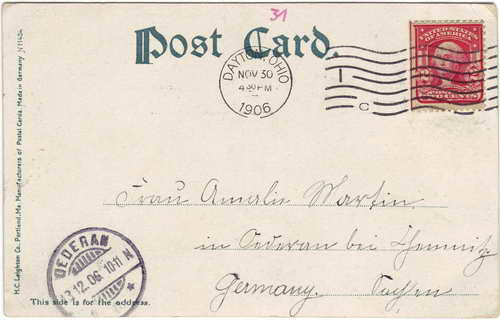 31
Post Card.
DAYTON, OHIO
NOV 30
4 30 PM
1906
1
C
UNITED STATES
OF AMERICA
Frau Amalie Martin.
in Oederan bei Chemnitz
Germany. Sachsen
OEDERAN
12.06. 10-11 N
This side is for the address.
H.C. Leighton Co. Portland, Me. Manufacturers of Postal Cards. Made in Germany